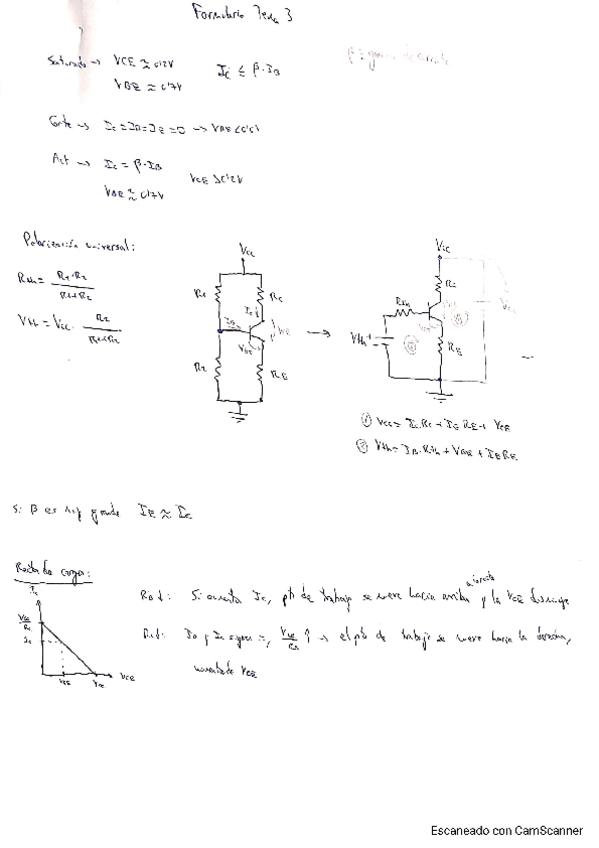 Formulario Tema 3
Saturado → VCE ≈ 0'2V   Ic ≤ β·IB   β = ganancia de corriente
VBE ≈ 0'7V
Corte → Ic=IB=IE=0 → VBE<0'5
Act → Ic = β·IB   VCE >0'2V
VBE ≈ 0'7V
Polarización universal:
Rth = R1·R2 / R1+R2
Vth = Vcc · R2 / R1+R2
Vcc
R1 Rc
Ic
IB
VCE
VBE
R2 RE
→
Vcc
Rc
Rth
Vth
RE
Vcc
① Vcc = Ic·Rc + IE·RE + VCE
② Vth = IB·Rth + VBE + IE RE
Si β es muy grande IE ≈ Ic
Recta de carga:
Ic
Ic
VCE Vcc VCE
Si aumenta Ic, pto de trabajo se mueve hacia arriba y la VCE disminuye
IB y Ic siguen =, ↑ → el pto de trabajo se mueve hacia la derecha,
aumentado VCE
Escaneado con CamScanner